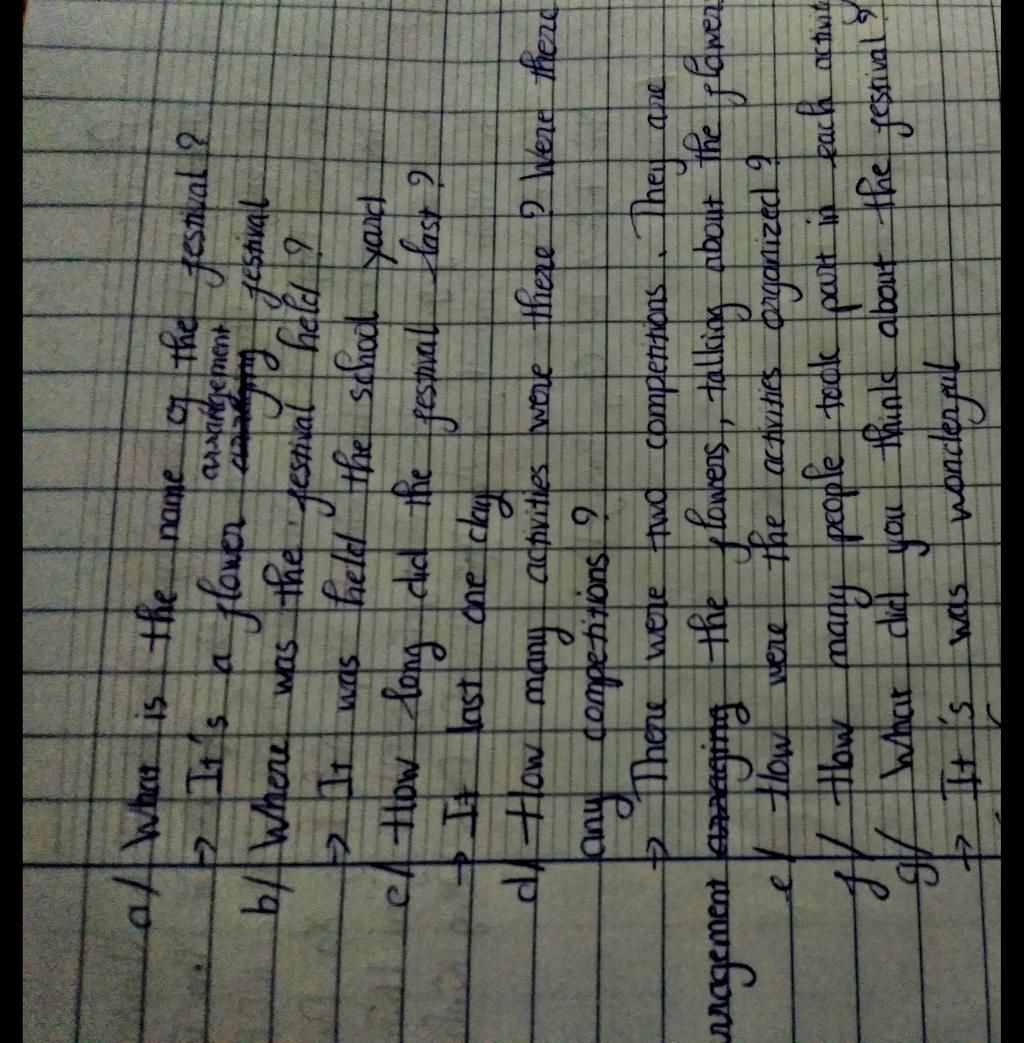 a/ What is the name of the festival ?
→ It's a flower arrangement festival
b/ Where was the festival held ?
→ It was held the school yard
c/ How long did the festival last ?
→ It last one day
d/ How many activities were there ? Were there
any competitions ?
→ There were two competitions. They are
the flowers, talking about the flower
e/ How were the activities organized ?
f/ How many people took part in each
g/ What did you think about the festival ?
→ It's was wonderful